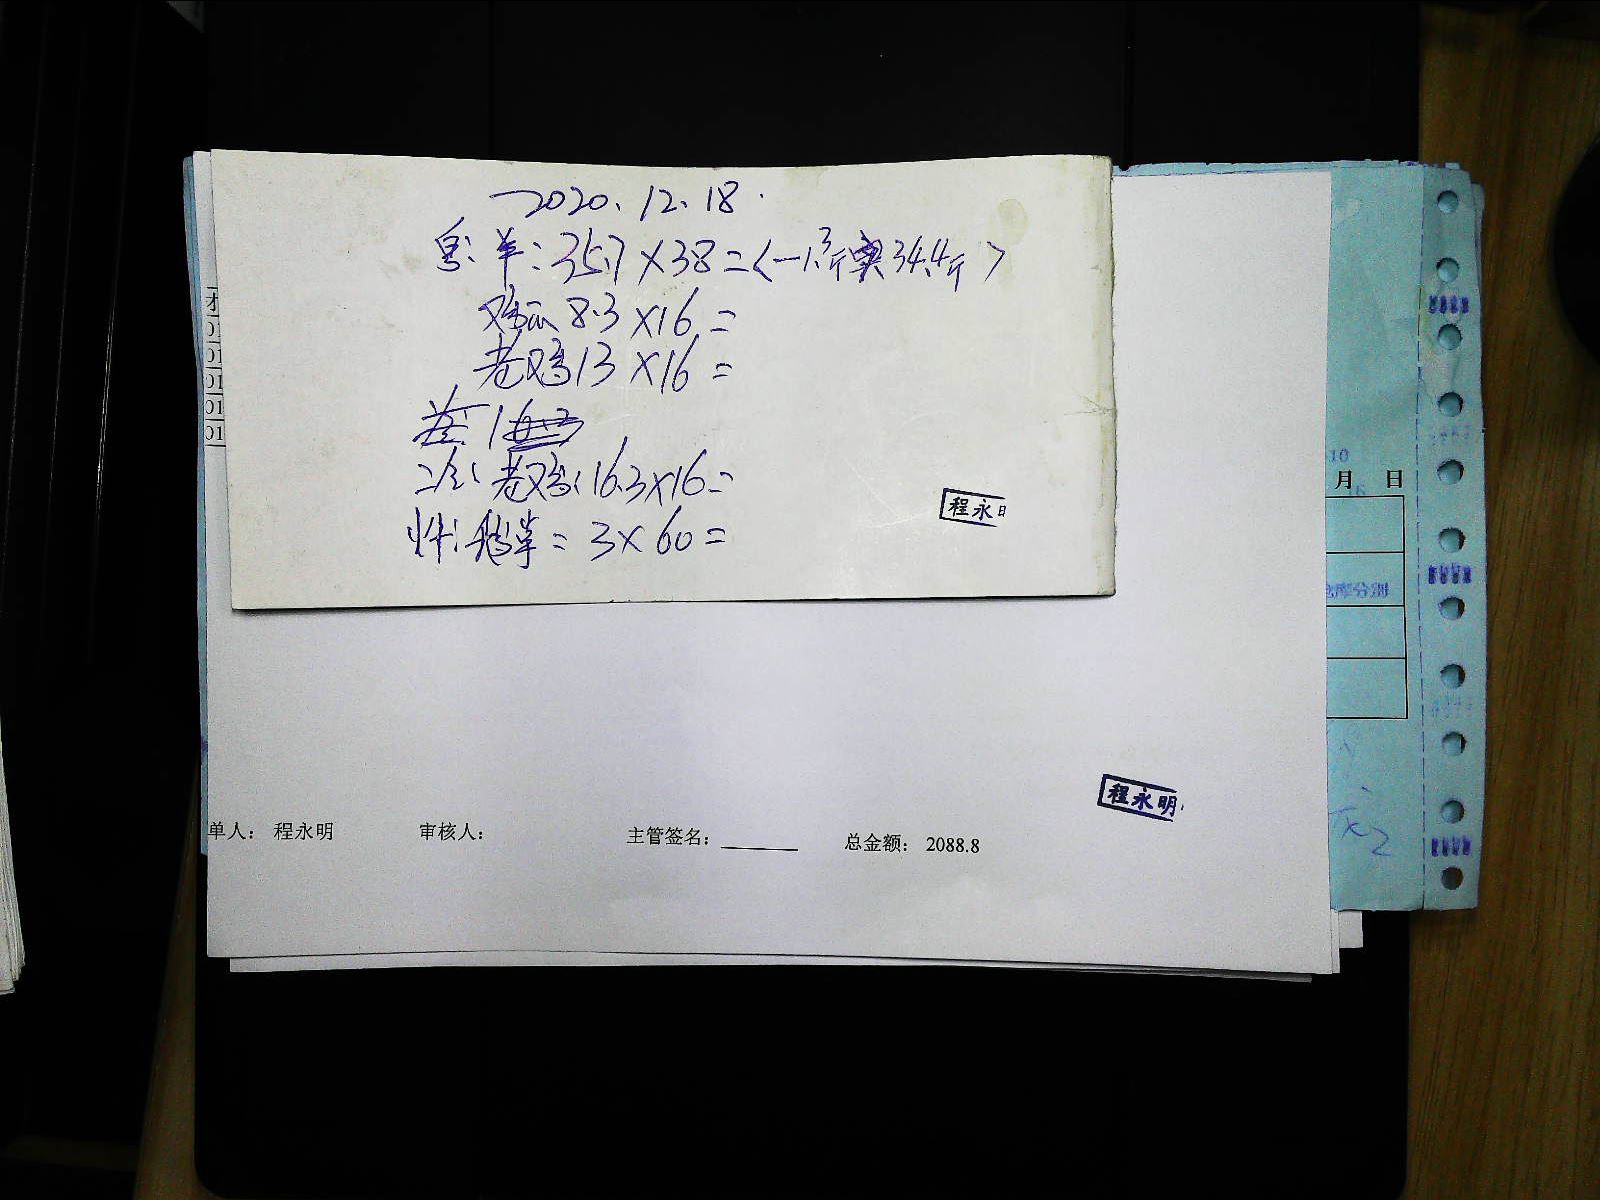 2020.12.18.
粤: 羊: 35.7×38=<-1.3斤实34.4斤>
鸡 8.3×16=
老鸡13×16=
老鸡: 16.3×16=
3×60=
程永
01
01
01
01
10
月 日
16
仓库分别
程永明
单人： 程永明 审核人： 主管签名： 总金额： 2088.8